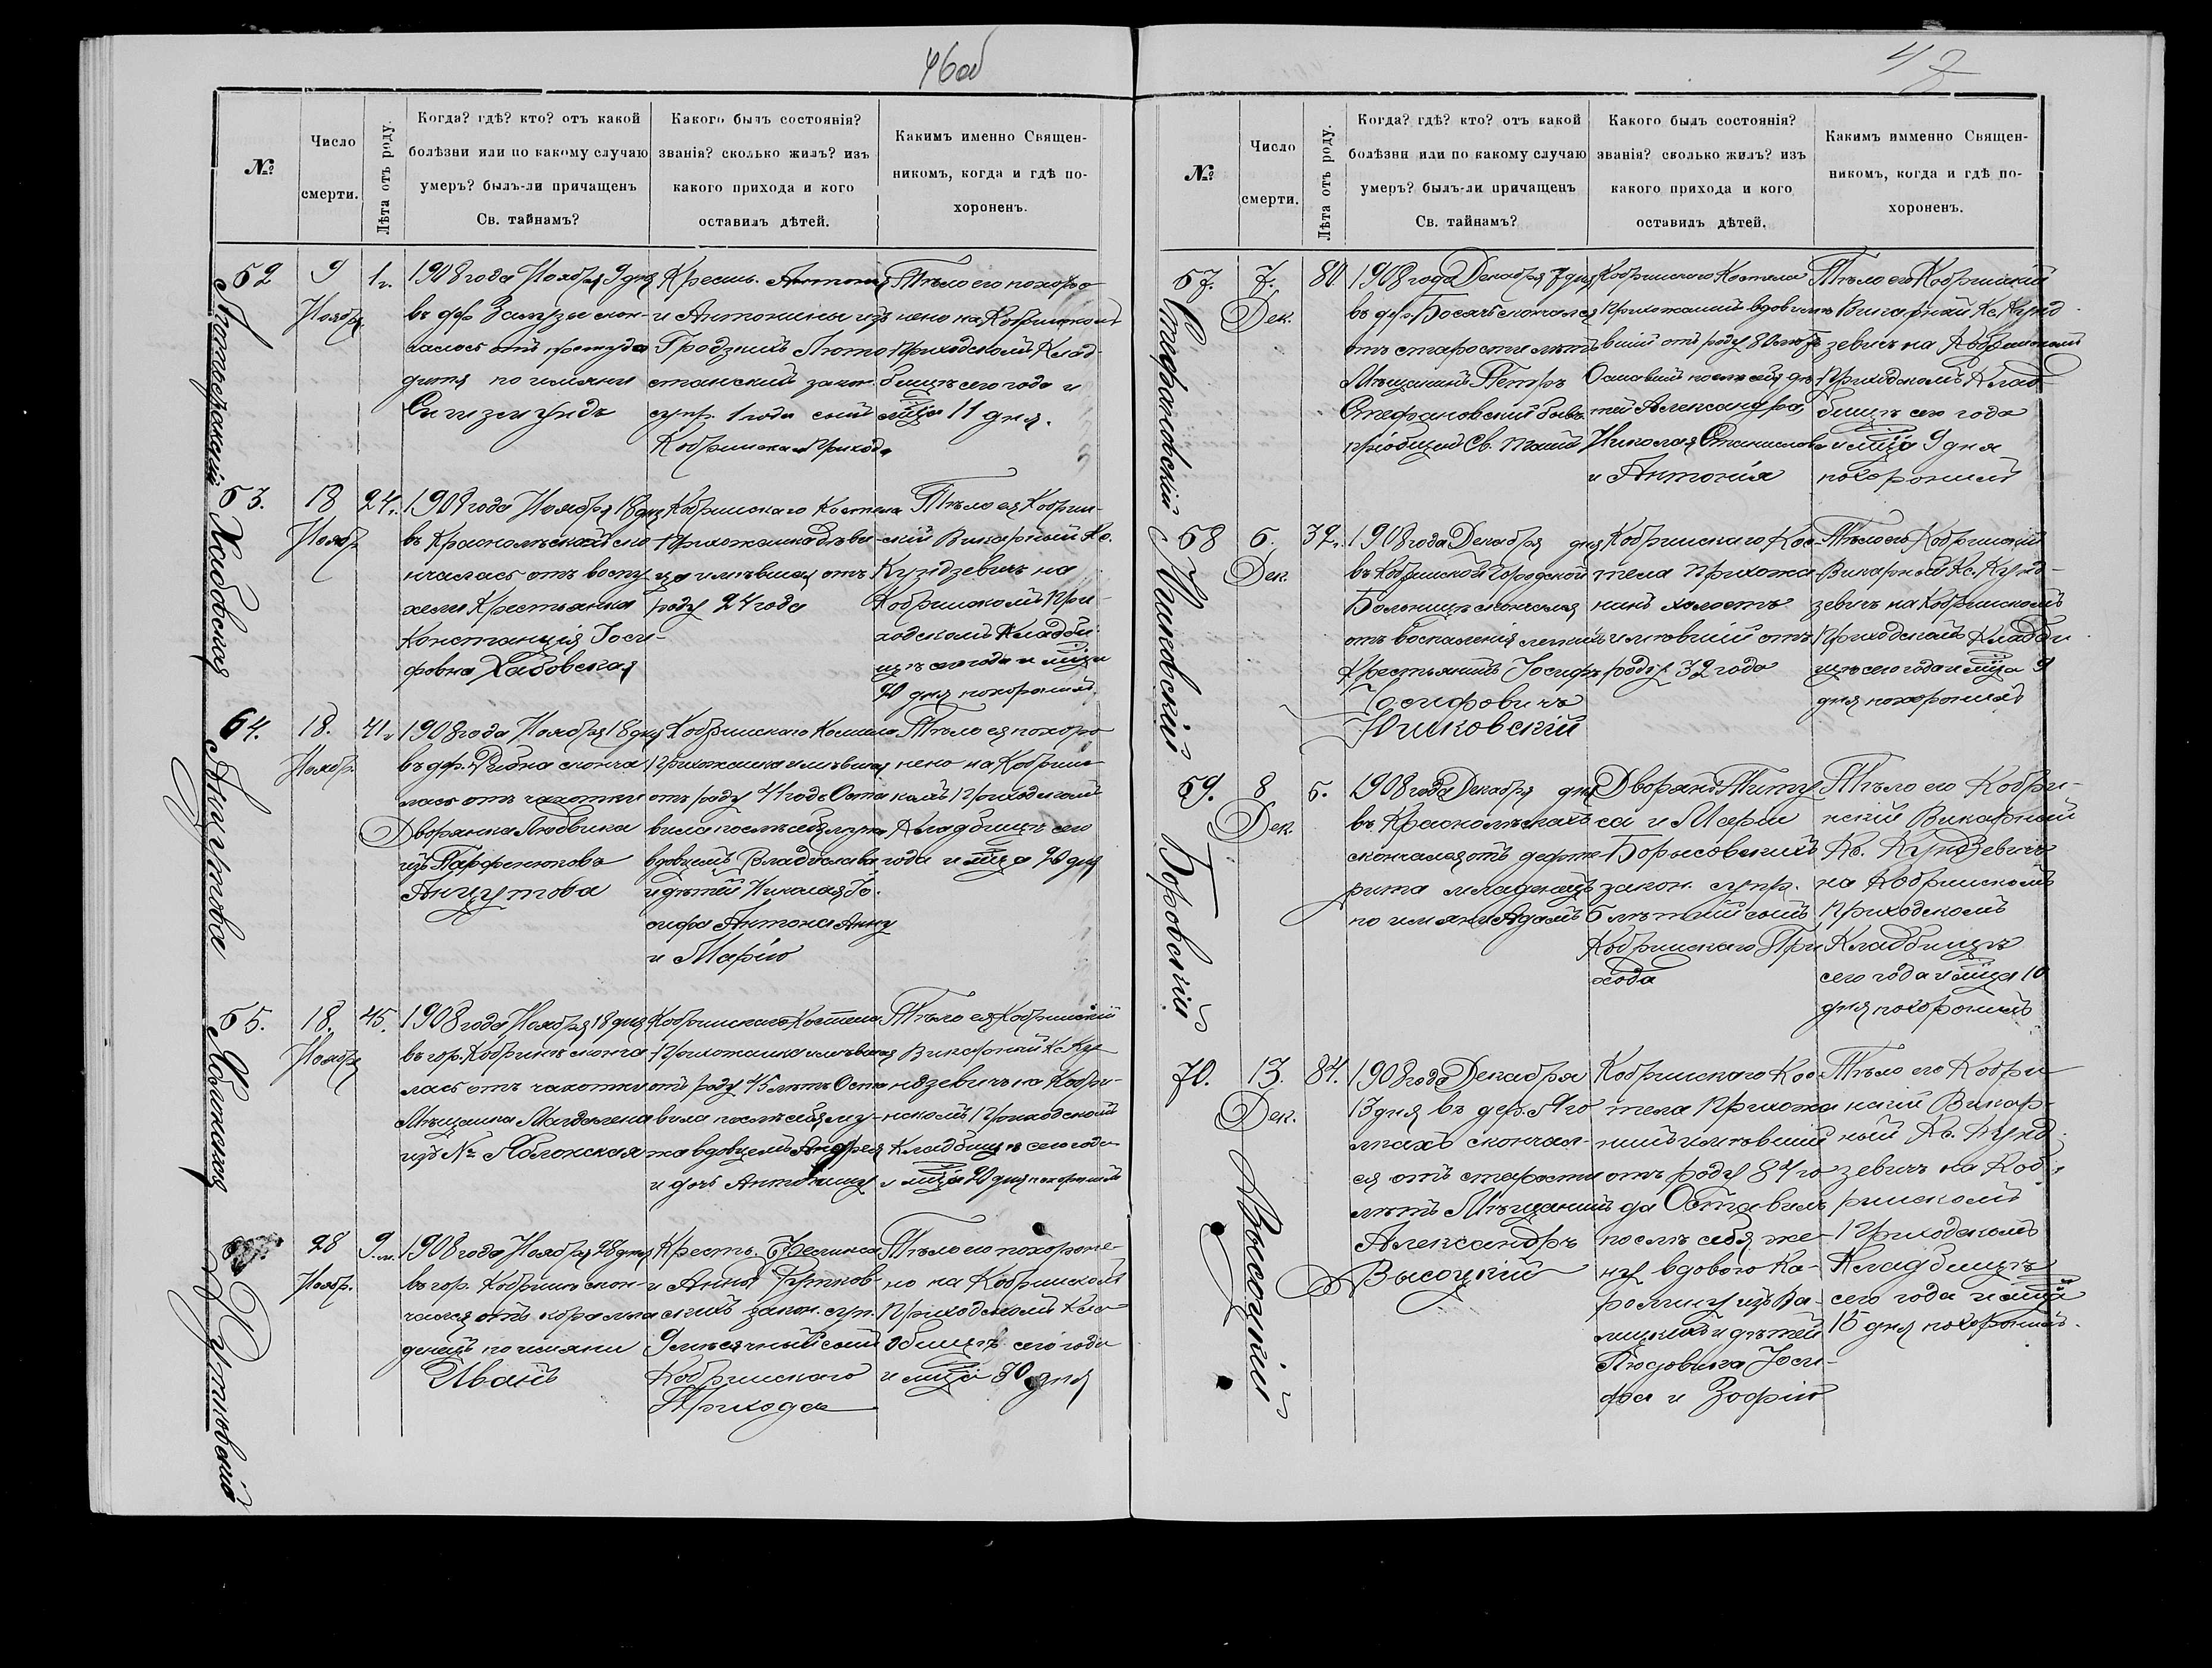 46об
№
Число
смерти.
Лѣта отъ роду.
Когда? гдѣ? кто? отъ какой
болѣзни или по какому случаю
умеръ? былъ-ли причащенъ
Св. тайнамъ?
Какого былъ состоянія?
званія? сколько жилъ? изъ
какого прихода и кого
оставилъ дѣтей.
Какимъ именно Священ-
никомъ, когда и гдѣ по-
хороненъ.
62
9
Ноября
1 г.
1908 года Ноября 9 дня
въ дер. скон-
отъ
дитя по имяни
Сигизмундъ
Крестьян.
и Антонины изъ
законн.
супр. 1 года сынъ
Кобринскаго Прихода
Тѣло его похоро
нено на Кобринскомъ
Приходскомъ Клад-
бищѣ сего года и
мѣца 11 дня.
63.
18
Ноябр
24 г.
Хабовская
1908 года Ноября 18 дня
въ ско
нчалась отъ
Крестьянка
Констанція Іоси-
фовна Хабовская
Кобринскаго Костела
Прихожанка дѣви-
ца имѣвшая отъ
роду 24 года
Тѣло ея Кобрин-
скій Викарный Кс.
Кундзевичъ на
Кобринскомъ При-
ходскомъ Кладби-
щѣ сего года и мѣца
20 дня похоронилъ.
64.
18.
Ноябр.
41 г.
Анцутова
1908 года Ноября 18 дня
въ дер. сконча
лась отъ чахотки
Дворянка Людвика
изъ
Анцутова
Кобринскаго Костела
Прихожанка имѣвшая
отъ роду 41 годъ Оста
вила послѣ себя мужа
вдовцемъ Владислава
и дѣтей Николая Іо-
сифа Антона Анну
и Марію
Тѣло ея похоро
нено на Кобрин-
скомъ Приходскомъ
Кладбищѣ сего
года и мѣца 20 дня
65.
18.
Ноября
45.
Яблонская
1908 года Ноября 18 дня
въ гор. Кобринѣ сконча
лась отъ чахотки
Мѣщанка Магдалена
изъ № Яблонская
Кобринскаго Костела
Прихожанка имѣвшая
отъ роду 45 лѣтъ Оста
вила послѣ себя му-
жа вдовцемъ Андрея
и дочь Антонину
Тѣло ея Кобринскій
Викарный Кс. Ку
ндзевичъ на Кобри-
нскомъ Приходскомъ
Кладбищѣ сего года
и мѣца 20 дня похоронилъ
28
Ноябр.
9 м.
1908 года Ноября 28 дня
въ гор. Кобринѣ скон-
чался отъ кора мла
денецъ по имяни
Иванъ
Крестьян. Феликса
и Анны
скихъ закон. супр.
9 мѣсячный сынъ
Кобринскаго
Прихода
Тѣло его похороне-
но на Кобринскомъ
Приходскомъ Кла
дбищѣ сего года
и мѣца 30 дня
47
№
Число
смерти.
Лѣта отъ роду.
Когда? гдѣ? кто? отъ какой
болѣзни или по какому случаю
умеръ? былъ-ли причащенъ
Св. тайнамъ?
Какого былъ состоянія?
званія? сколько жилъ? изъ
какого прихода и кого
оставилъ дѣтей.
Какимъ имменно Священ-
никомъ, когда и гдѣ по-
хороненъ.
67.
7.
Дек.
80
Стефановскій
1908 года Декабря 7 дня
въ дер. скончался
отъ старости лѣтъ
Мѣщанинъ Петръ
Стефановскій бывъ
пріобщенъ Св. Таинъ
Кобринскаго Костела
Прихожанинъ вдов имѣ
вшій отъ роду 80 лѣтъ
Оставилъ послѣ себя дѣ-
тей Александра,
Николая Станислава
и Антонія
Тѣло его Кобринскій
Викарный Кс. Кунд
зевичъ на Кобринскомъ
Приходскомъ Клад-
бищѣ сего года
и мѣца 9 дня
похоронилъ
68
6.
Дек.
32 г.
Юшковскій
1908 года Декабря дня
въ Кобринской Городской
Больницѣ скончался
отъ воспаленія легкихъ
Крестьянинъ Іосифъ
Іосифовичъ
Юшковскій
Кобринскаго Кос-
тела Прихожа
нинъ холостъ
имѣвшій отъ
роду 32 года
Тѣло его Кобринскій
Викарный Кс. Кунд-
зевичъ на Кобринскомъ
Приходскомъ Кладби
щѣ сего года и мѣца 9
дня похоронилъ
69.
8
Дек.
6.
1908 года Декабря дня
въ
скончался отъ дефте
рита младенецъ
по имяни Адамъ
Дворянъ
и Маріи
Борысовскихъ
закон. супр.
6 лѣтній сынъ
Кобринскаго При
хода
Тѣло его Кобри-
нскій Викарный
Кс. Кундзевичъ
на Кобринскомъ
Приходскомъ
Кладбищѣ
сего года и мѣца 10
дня похоронилъ
70.
13.
Дек.
84.
Высоцкій
1908 года Декабря
13 дня въ дер.
скончал-
ся отъ старости
лѣтъ Мѣщанинъ
Александръ
Высоцкій
Кобринскаго Кос
тела Прихожа
нинъ имѣвшій
отъ роду 84 го
да Оставилъ
послѣ себя же-
ну вдовою Ка-
ролину изъ
и дѣтей
Людовика Іоси-
фа и Зофію
Тѣло его Кобри
нскій Викар-
ный Кс. Кунд
зевичъ на Коб-
ринскомъ
Приходскомъ
Кладбищѣ
сего года и мѣца
дня похоронилъ.